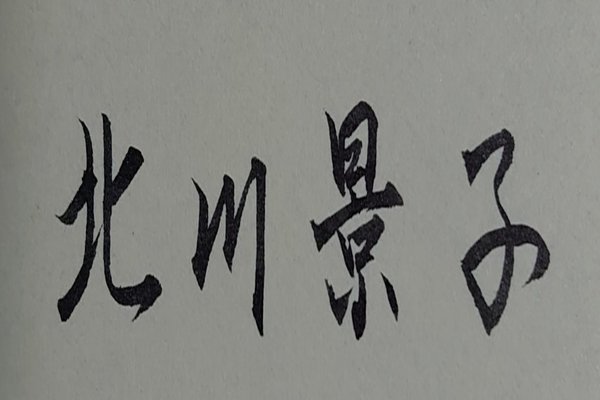 北川景子